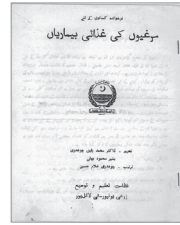 مرغیوں کی غذائی بیماریاں
تحریر : ڈاکٹر محمد یٰسین چوہدری
بشیر محمود بھٹی
ترتیب : چوہدری غلام حسین
نظامت تعلیم و توسیع
زرعی یونیورسٹی لائلپور